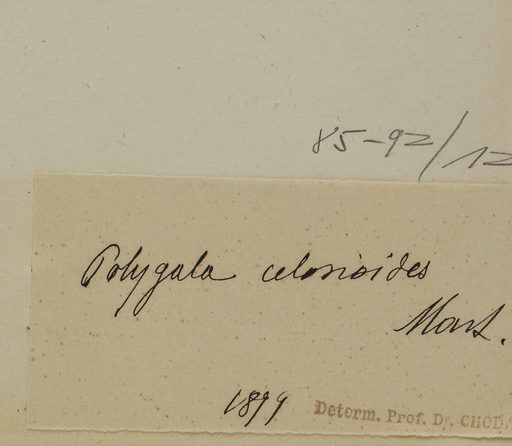 85-92/12
Polygala celosioides
Mart.
1899
Determ. Prof. Dr. CHODA